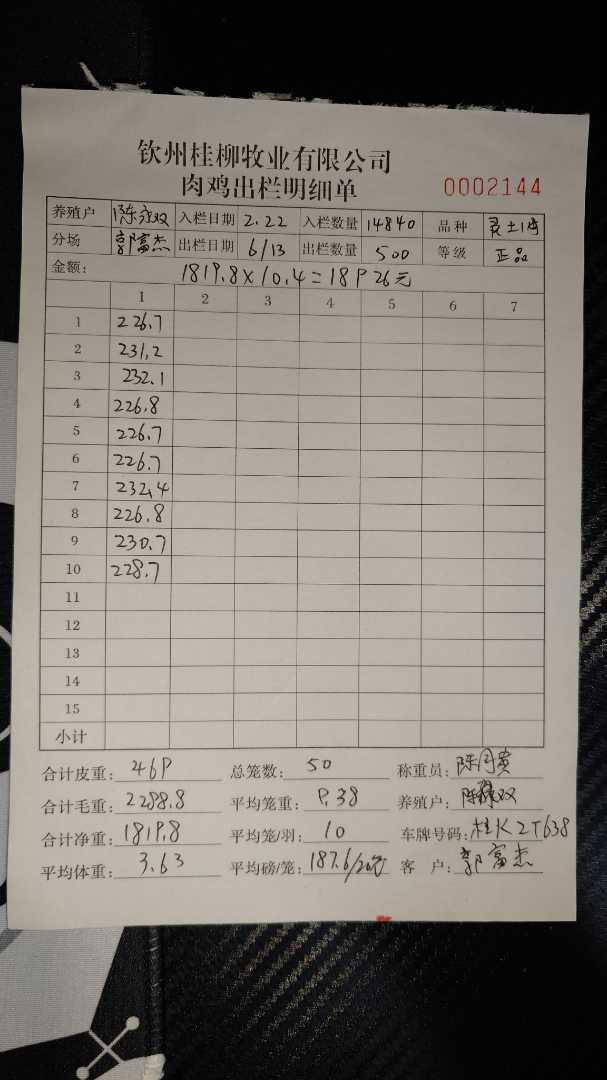 钦州桂柳牧业有限公司
肉鸡出栏明细单 0002144
养殖户 陈 双 入栏日期 2.22 入栏数量 14840 品种 灵土1号
分场 郭富杰 出栏日期 6/13 出栏数量 500 等级 正品
金额: 1819.8×10.4=18926元
1 2 3 4 5 6 7
1 226.7
2 231.2
3 232.1
4 226.8
5 226.7
6 226.7
7 232.4
8 226.8
9 230.7
10 228.7
11
12
13
14
15
小计
合计皮重: 469 总笼数: 50 称重员: 陈
合计毛重: 2288.8 平均笼重: 9.38 养殖户: 陈 双
合计净重: 1819.8 平均笼/羽: 10 车牌号码: 桂K2T638
平均体重: 3.63 平均磅/笼: 187.6/20 客 户: 郭富杰